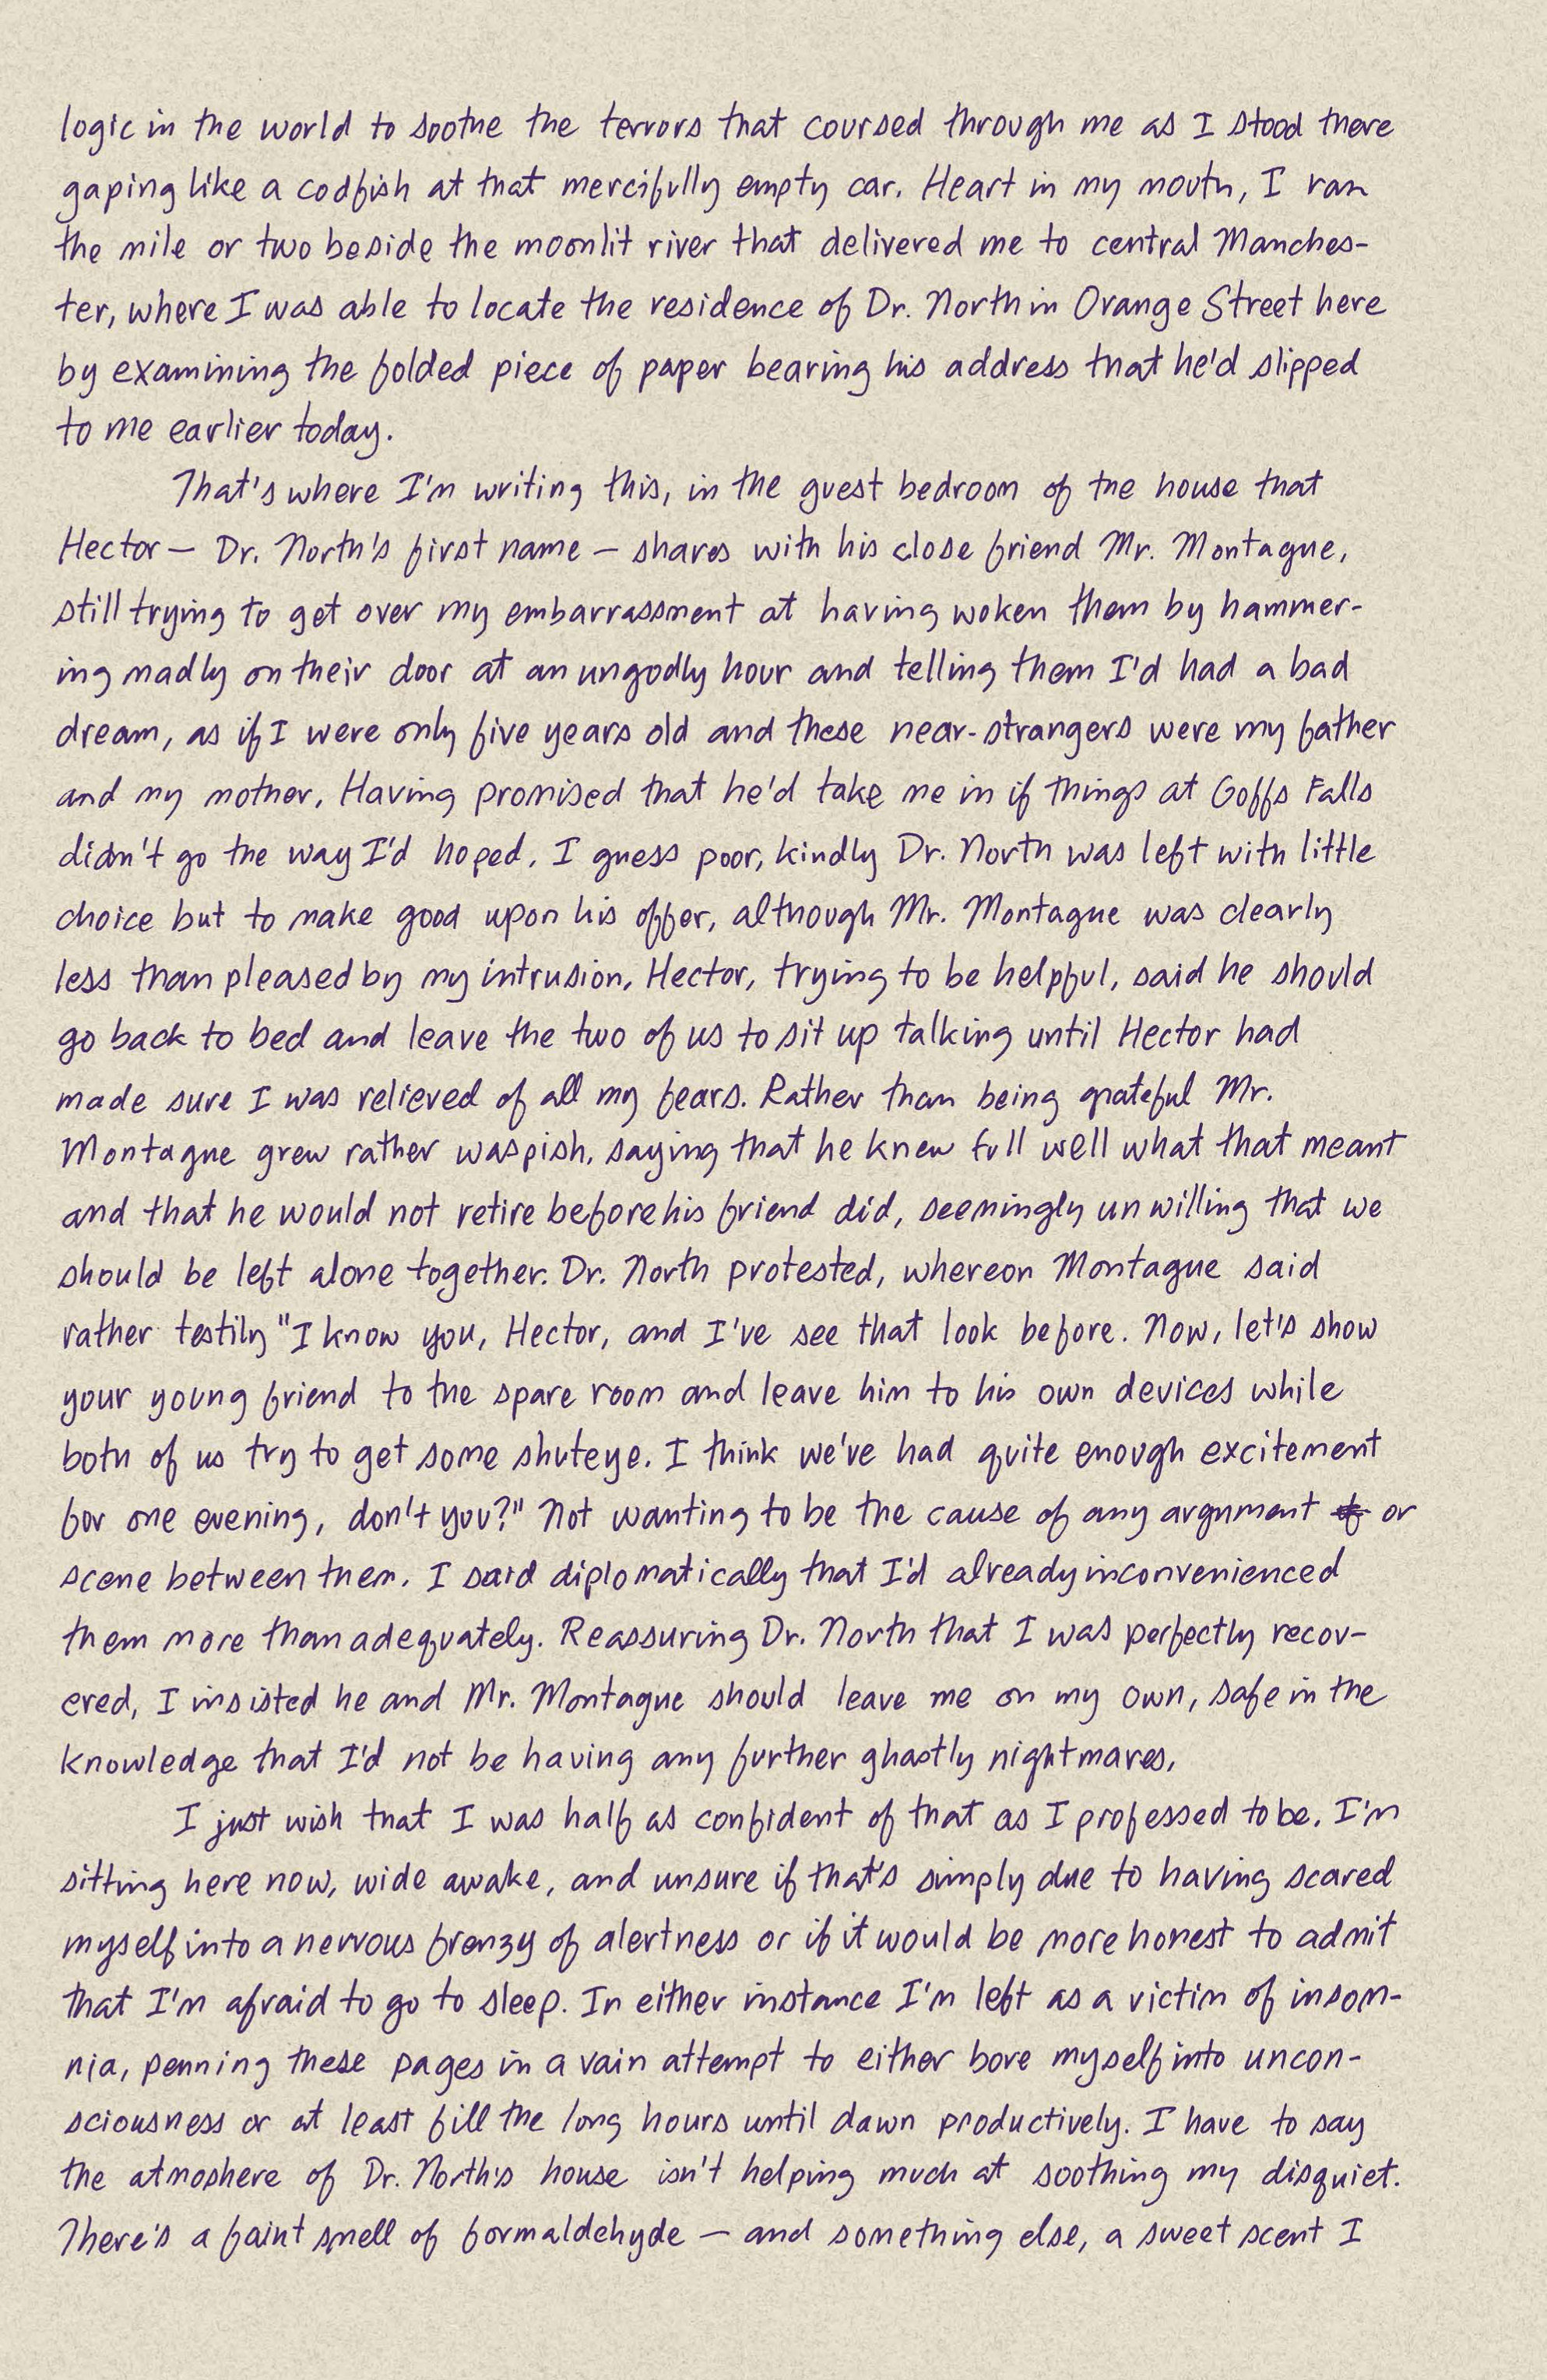 logic in the world to soothe the terrors that coursed through me as I stood there
gaping like a codfish at that mercifully empty car. Heart in my mouth, I ran
the mile or two beside the moonlit river that delivered me to central Manches-
ter, where I was able to locate the residence of Dr. North in Orange Street here
by examining the folded piece of paper bearing his address that he'd slipped
to me earlier today.
That's where I'm writing this, in the guest bedroom of the house that
Hector — Dr. North's first name — shares with his close friend Mr. Montague,
still trying to get over my embarrassment at having woken them by hammer-
ing madly on their door at an ungodly hour and telling them I'd had a bad
dream, as if I were only five years old and these near-strangers were my father
and my mother. Having promised that he'd take me in if things at Goffs Falls
didn't go the way I'd hoped, I guess poor, kindly Dr. North was left with little
choice but to make good upon his offer, although Mr. Montague was clearly
less than pleased by my intrusion. Hector, trying to be helpful, said he should
go back to bed and leave the two of us to sit up talking until Hector had
made sure I was relieved of all my fears. Rather than being grateful Mr.
Montague grew rather waspish, saying that he knew full well what that meant
and that he would not retire before his friend did, seemingly unwilling that we
should be left alone together. Dr. North protested, whereon Montague said
rather testily "I know you, Hector, and I've see that look before. Now, let's show
your young friend to the spare room and leave him to his own devices while
both of us try to get some shuteye. I think we've had quite enough excitement
for one evening, don't you?" Not wanting to be the cause of any argument or
scene between them, I said diplomatically that I'd already inconvenienced
them more than adequately. Reassuring Dr. North that I was perfectly recov-
ered, I insisted he and Mr. Montague should leave me on my own, safe in the
knowledge that I'd not be having any further ghastly nightmares.
I just wish that I was half as confident of that as I professed to be. I'm
sitting here now, wide awake, and unsure if that's simply due to having scared
myself into a nervous frenzy of alertness or if it would be more honest to admit
that I'm afraid to go to sleep. In either instance I'm left as a victim of insom-
nia, penning these pages in a vain attempt to either bore myself into uncon-
sciousness or at least fill the long hours until dawn productively. I have to say
the atmoshere of Dr. North's house isn't helping much at soothing my disquiet.
There's a faint smell of formaldehyde — and something else, a sweet scent I